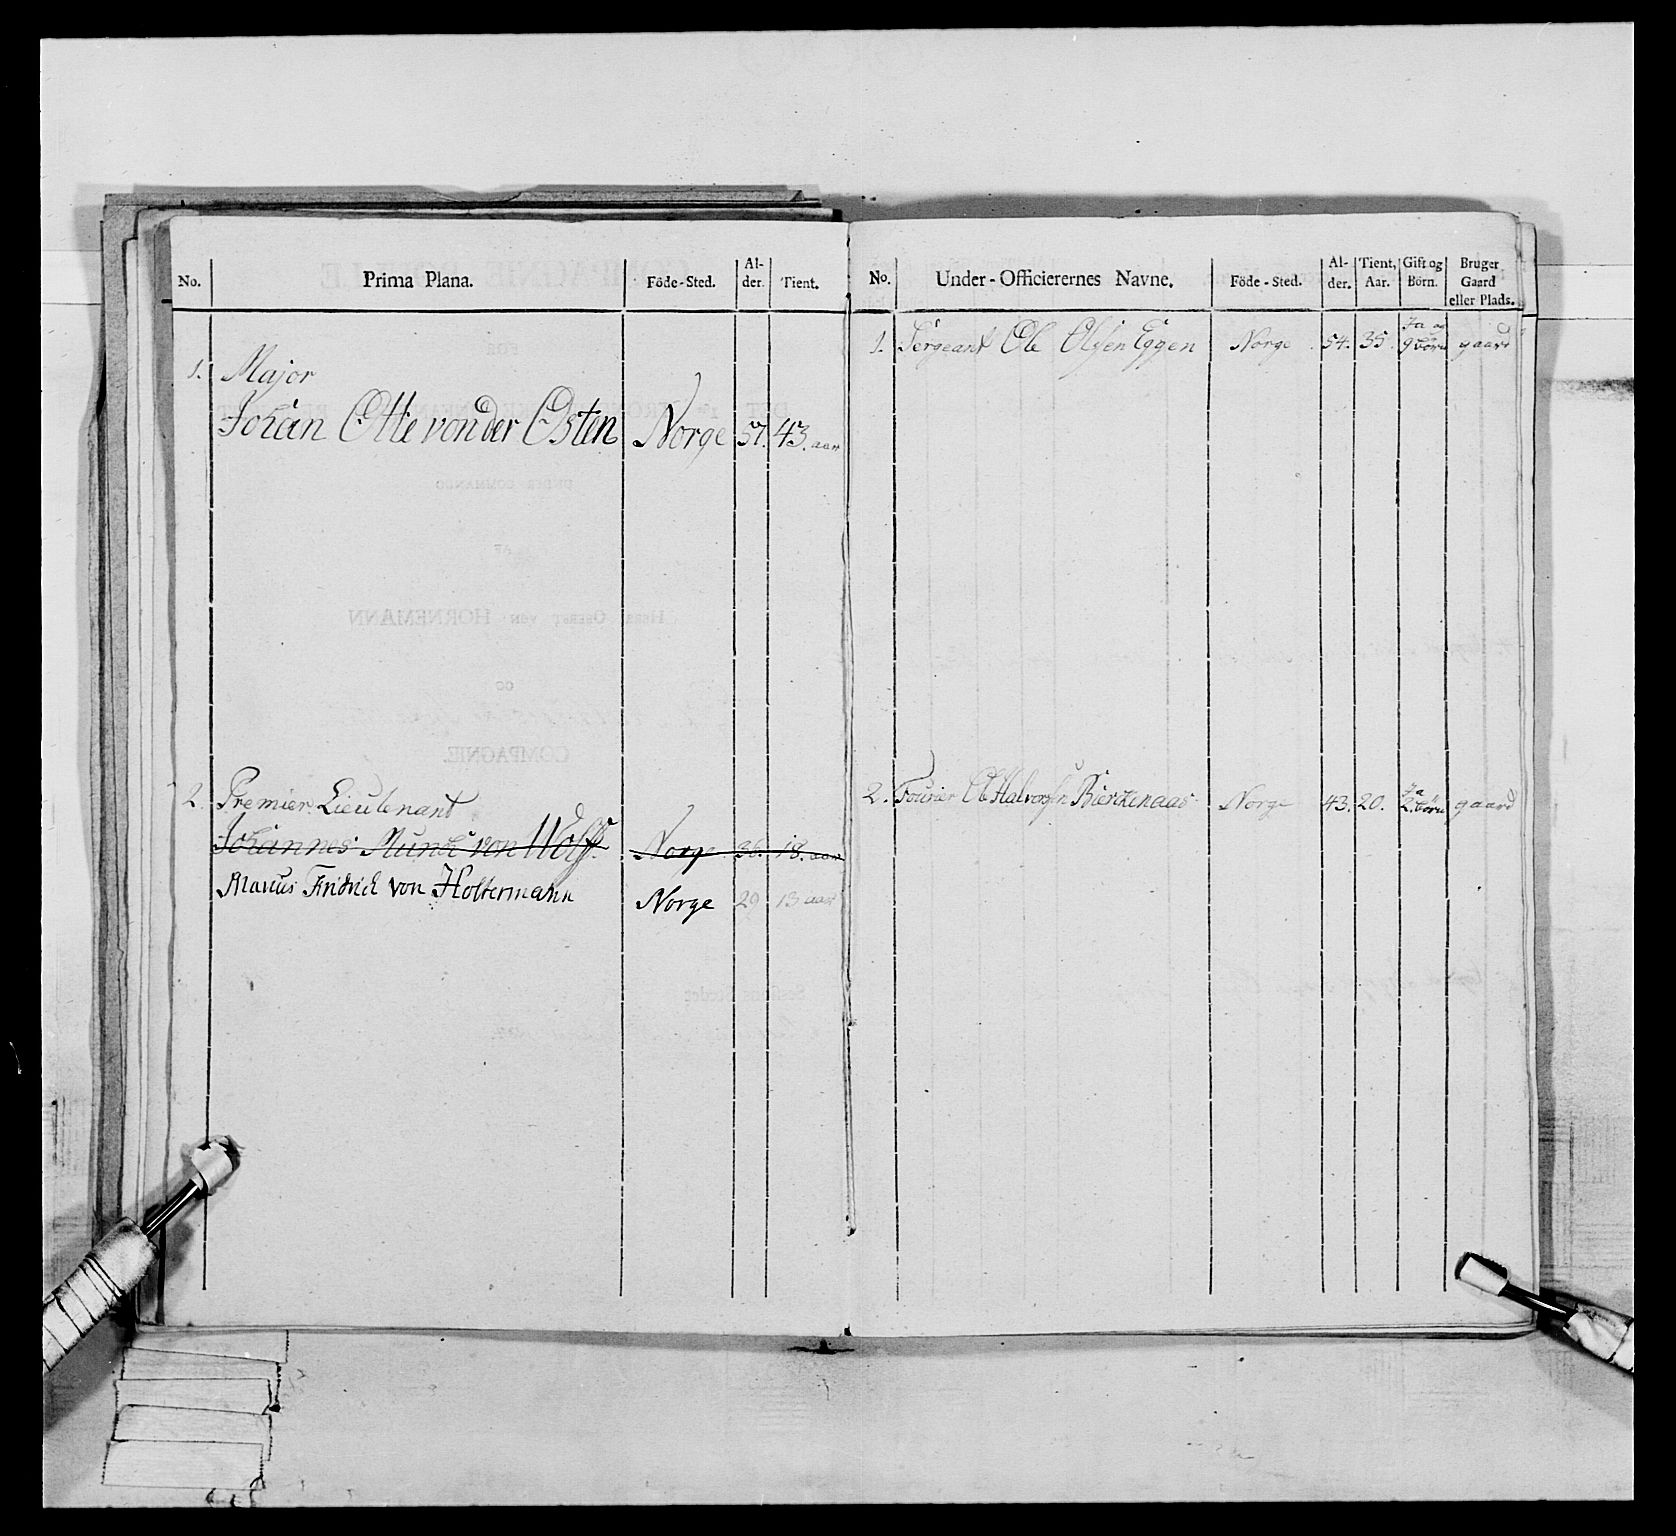 No. Prima Plana. Föde-Sted. Al-der. Tient.
1. Major
Johan Otte von der Osten Norge 57. 43. aar
2. Premier Lieutenant
Johannes Munck von Wolff Norge 36. 18. aar
Marius Fridrich von Holtermann Norge 29 13 aar
No. Under-Officierernes Navne. Föde-Sted. Al-der. Tient, Aar. Gift og Börn. Bruger Gaard eller Plads.
1. Sergeant Ole Olsen Eggen Norge 54. 35. Ja og 9 börn gaard
2. Fourier Ole Halvorsen Bierckenaas Norge 43. 20. Ja 2. börn gaard